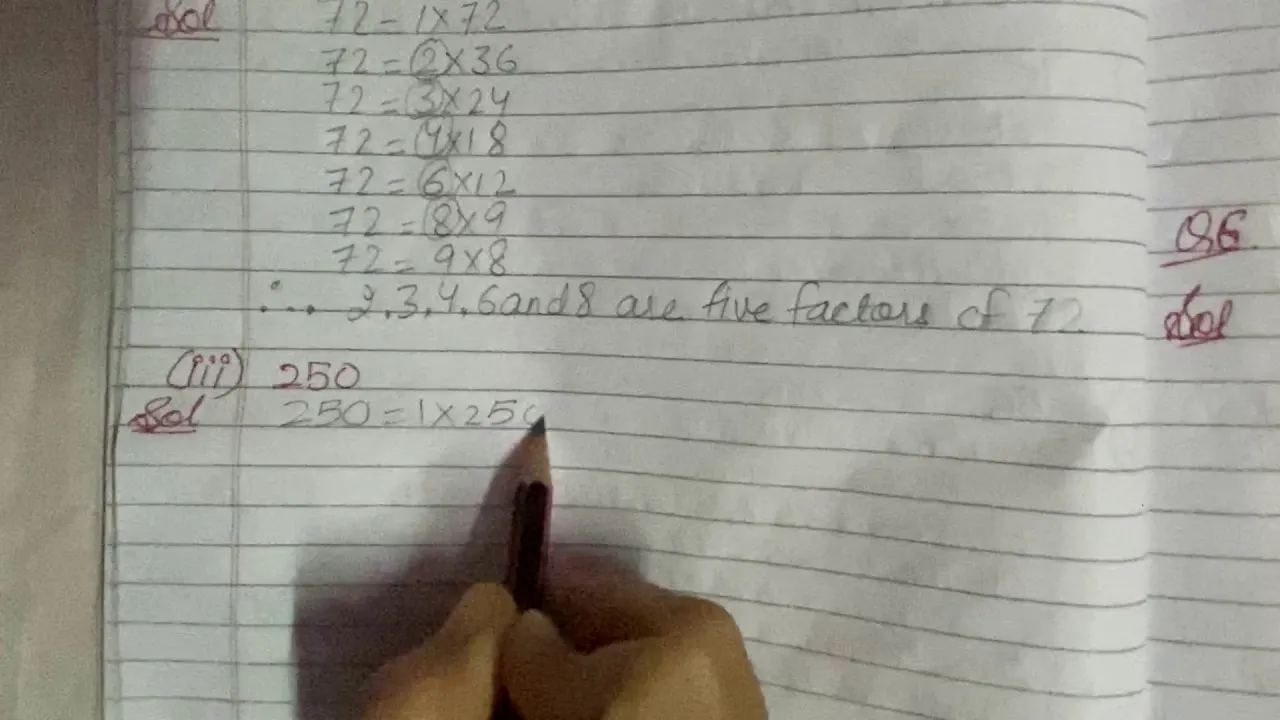 Sol 72 = 1×72
72 = 2×36
72 = 3×24
72 = 4×18
72 = 6×12
72 = 8×9
72 = 9×8
∴ 2,3,4,6and8 are five factors of 72
(iii) 250
Sol 250 = 1×250
Q6.
Sol